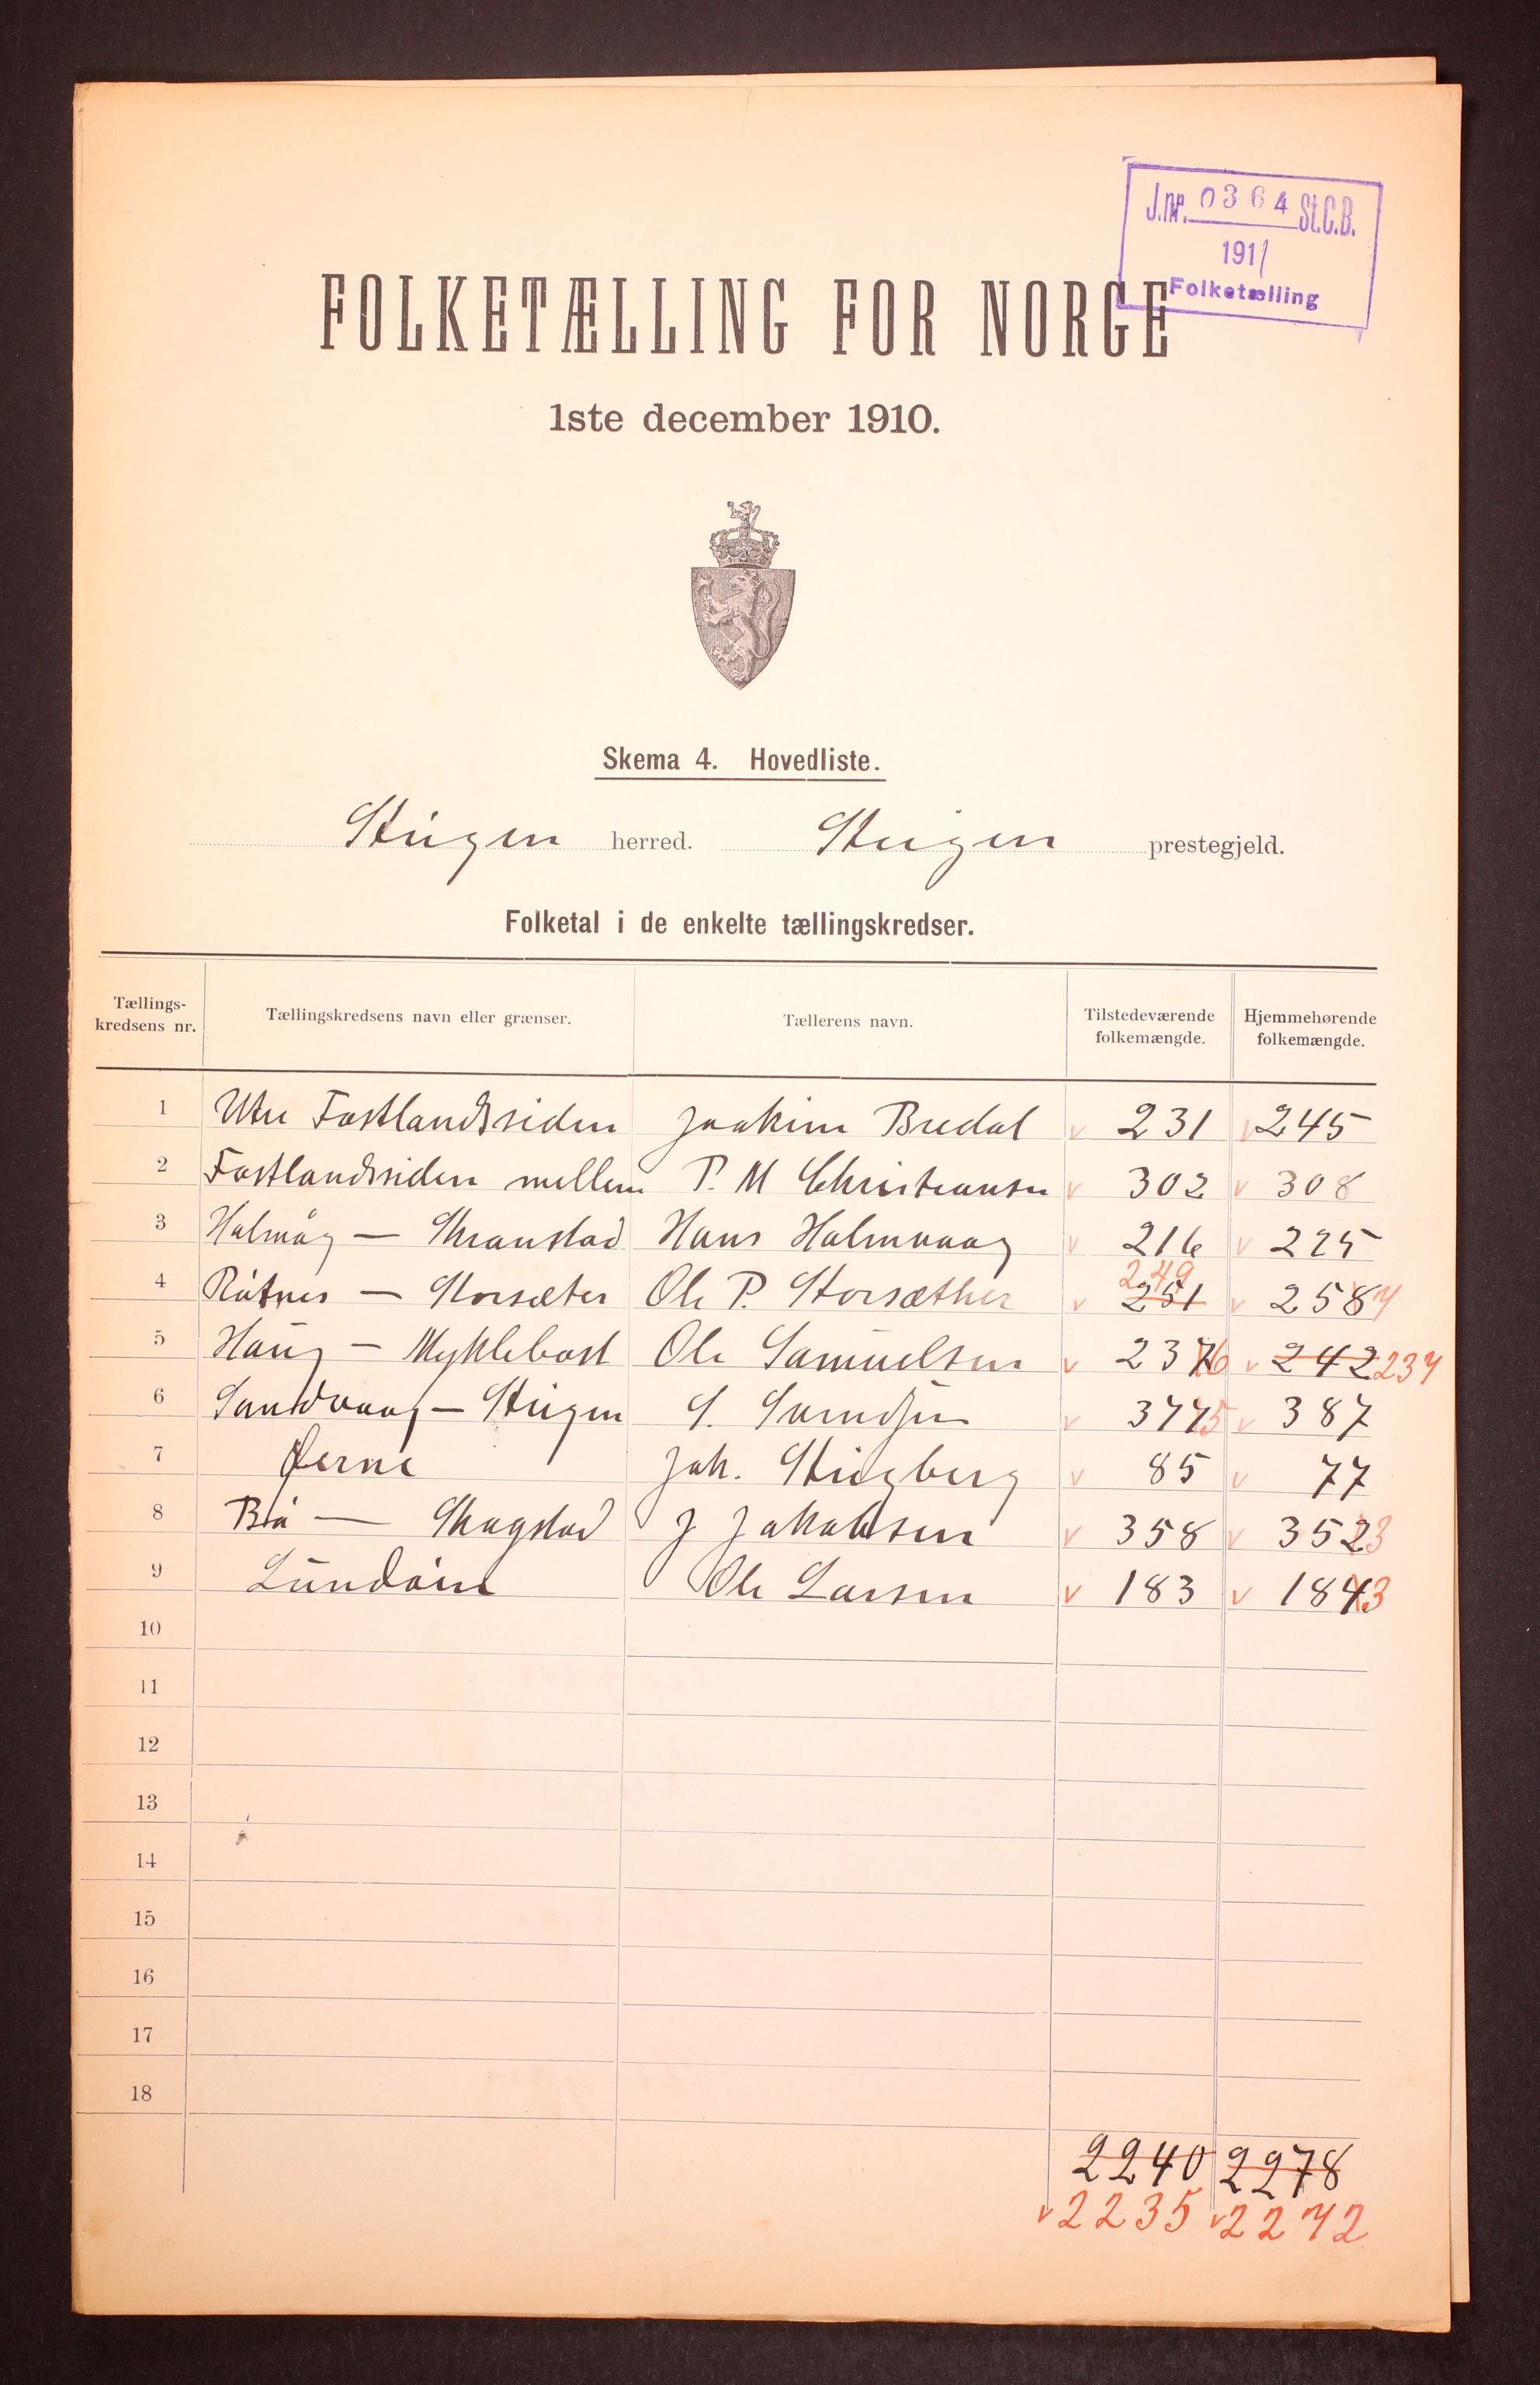 J.nr. 0364 St.C.B.
1911
Folketælling
FOLKETÆLLING FOR NORGE
1ste december 1910.
Skema 4. Hovedliste.
Steigen herred. Steigen prestegjeld.
Folketal i de enkelte tællingskredser.
Tællings-kredsens nr. Tællingskredsens navn eller grænser. Tællerens navn. Tilstedeværende folkemængde. Hjemmehørende folkemængde.
1 Utre Fastlandssiden Joakim Bredal v 231 v 245
2 Fastlandssiden mellem P. M Christiansen v 302 v 308
3 Holmåg — Skranstad Hans Holmvaag v 216 v 225
4 Røtnes — Storsæter Ole P. Storsæther v 251 249 v 258 7
5 Haug — Myklebost Ole Samuelsen v 237 6 v 242 237
6 Sandvaag — Steigen S. v 377 5 v 387
7 Øerne Joh. Steigberg v 85 v 77
8 Bø — Skagstad J Jakobsen v 358 v 352 3
9 Lundøen Ole Larsen v 183 v 184 3
10
11
12
13
14
15
16
17
18
2240 2278
v 2235 v 2272